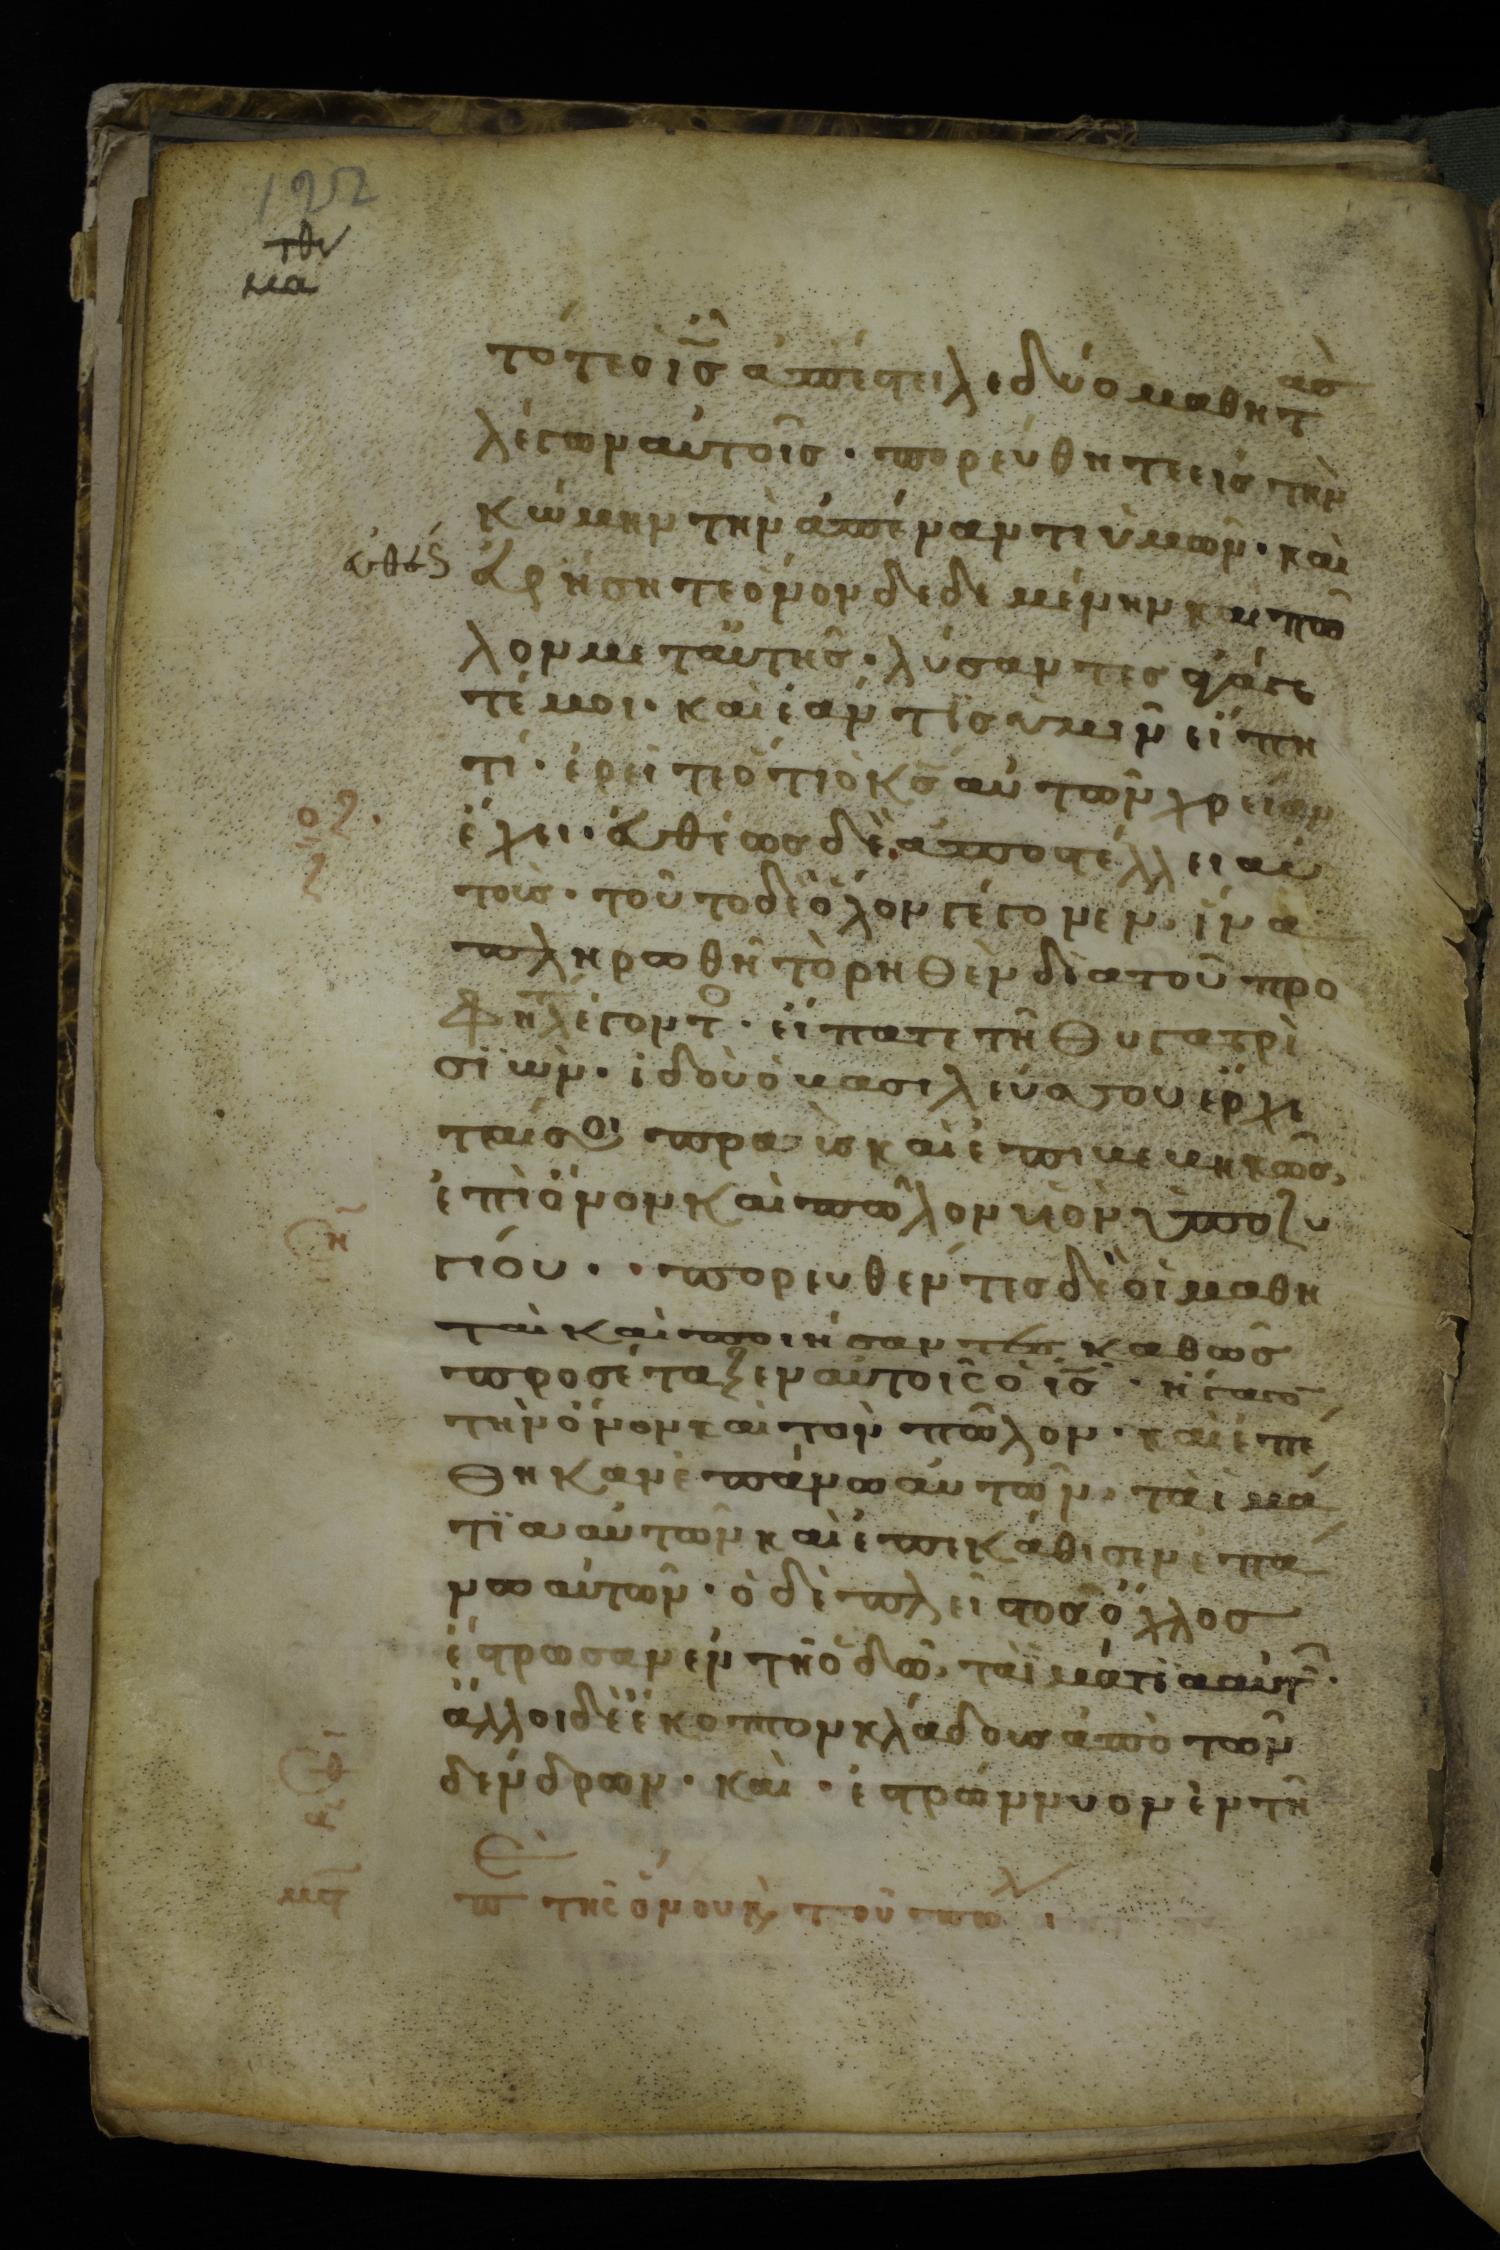 122
μα
τότε ὁ ις̅ ἀπέστειλε δύο μαθητὰσ
λέγων αὐτοῖσ · πορεύθητε εἰσ τὴν
κώμην τὴν ἀπέναντι ὑμῶν · καὶ
εὐθέως
εὑρήσητε ὄνον δεδεμένην και πῶ
λον μετ αὐτῆσ · λύσαντεσ ἀγάγε
τέ μοι · καὶ ἐάν τισ ὑμῖν εἴπη
τί · ἐρεῖτε ὅτι ὁ κς̅ αὐτῶν χρείαν
ἔχει · εὐθέωσ δὲ ἀποστέλλει αὐ
τούσ · τοῦτο δὲ ὅλον γέγονεν · ἵνα
πληρωθῆ τὸ ρηθὲν διὰ τοῦ προ
φητ λέγοντο · εἴπατε τῆ θυγατρὶ
σιὼν · ἰδοὺ ὁ βασιλεύσ σου ἔρχε
ταί σοι πραὺσ καὶ ἐπιβεβηκὼσ,
ἐπὶ ὄνον καὶ πῶλον υἱὸν ὑποζυ
γίου · · πορευθέντεσ δὲ οἱ μαθη
ταὶ καὶ ποιήσαντεσ καθὼσ
προσέταξεν αὐτοῖσ ὁ ις̅ · ἤγαγο
τὴν ὄνον καὶ τὸν πῶλον · καὶ ἐπέ
θηκαν ἐπάνω αὐτῶν · τὰ ἱμά
τια αὐτῶν καὶ ἐπεκάθισεν ἐπά
νω αὐτῶν · ὁ δὲ πλεῖστοσ ὄχλοσ
ἔστρωσαν ἐν τῆ ὁδῶ, τὰ ἱμάτια αὐτ ·
ἄλλοι δὲ ἔκοπτον κλάδουσ ἀπὸ τῶν
δένδρων · καὶ · ἐστρώννυον ἐν τῆ
π τῆσ ὄνου κ τοῦ πωλ